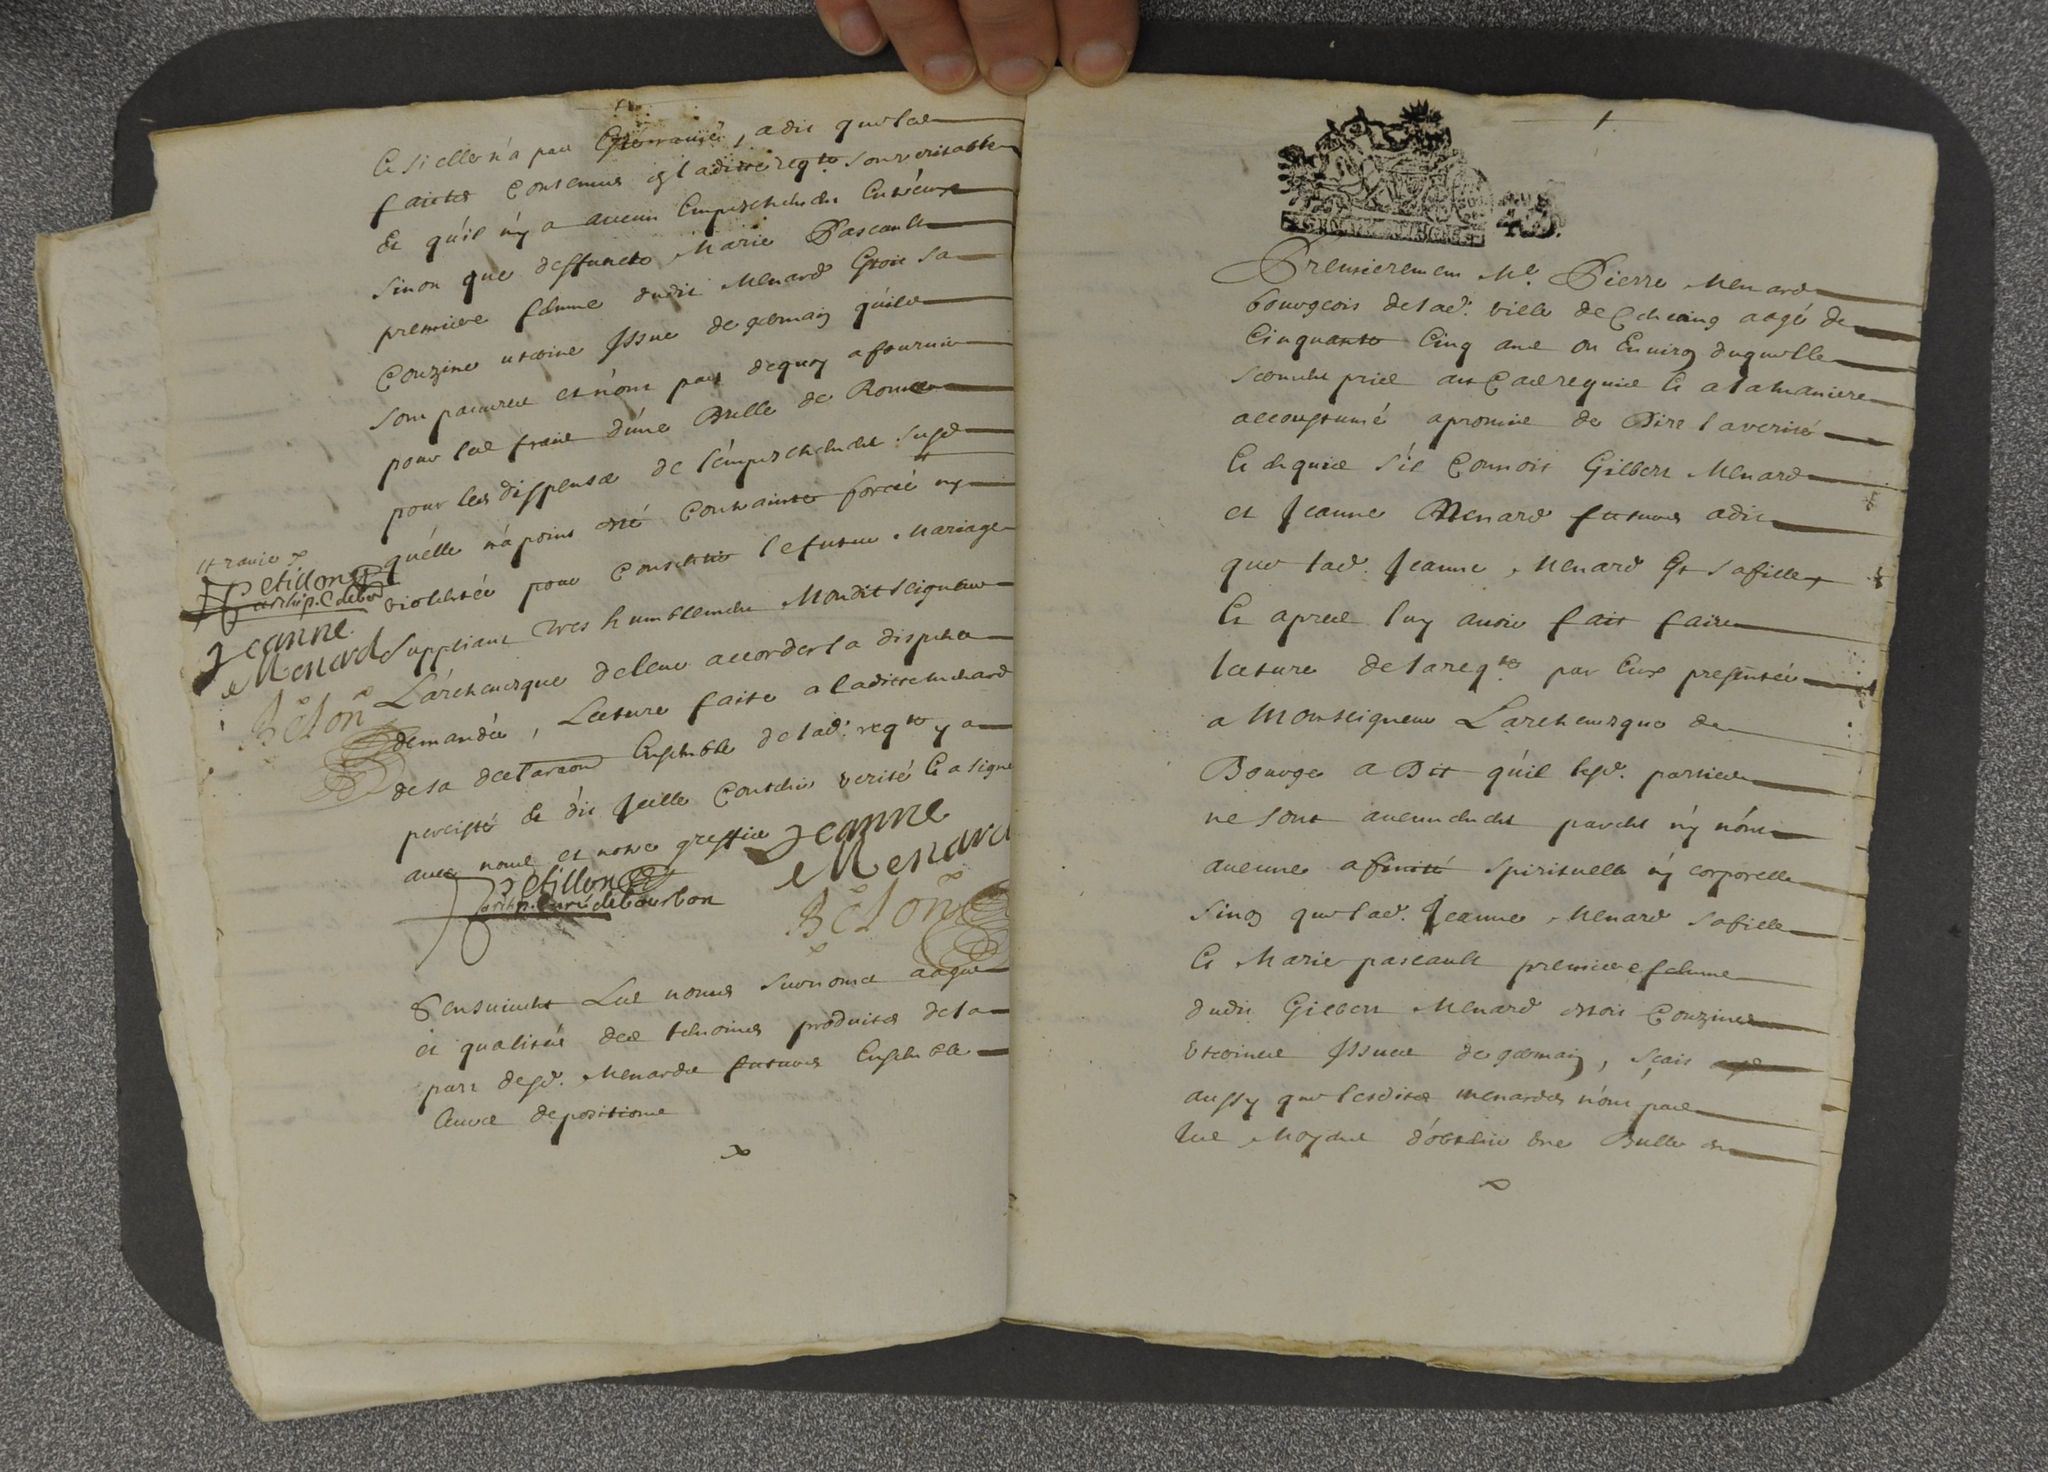 Et si elle n'a pas esté mariée, a dit que les
faictes contenus en laditte reqte son veritable
et qu'il n'y a aucun empeschement entreux
sinon que deffuncte Marie Pascault
premiere femme dudit Menard estoit sa
Couzine uterine issue de germain qu'ils
sont pauvres et n'ont pas dequoy a fournir
pour les frais d'une Bulle de Rome
pour les dispense de l'empeschement susd
quelle n'a point esté contrainte forcée ny
violentée pour consentir le futur mariage
suppliant tres humblement Mondit seigneur
L'archevesque de leur accorder la dispence
demandée, Lecture faite a laditte menard
de sa declaraon ensemble de lad. reqte y a
persisté et dit icelle contenir verité et a signé
avec nous et notre greffier
Jeanne
Menard
Petillon
archip. curé de bourbon
Belon
Petillon
archip. C. de bo
Jeanne
Menard
Belon
S'ensuivent Les noms surnoms aages
et qualités des temoins produites de la
part desd. Menards futures ensemble
leurs depositions
Premierement Me. Pierre Menard
bourgeois de lad. ville de aagé de
cinquante cinq ans ou environ duquel le
serment pris au cas requis et a la maniere
accoustumé a promis de Dire la verité
Et enquis s'il connoit Gilbert Menard
et Jeanne Menard futures a dit
que lad. Jeanne Menard est sa fille
Et apres luy avoir fait faire
lecture de la reqte par eux presentée
a Monseigneur L'archevesque de
Bourge a Dit qu'il lesd. parties
ne sont aucunement parent n'y n'ont
aucune afinité spirituelle n'y corporelle
sinon que lad. Jeanne Menard sa fille
Et Marie pascault premiere femme
dudit Gilbert Menard estoit Couzines
Uterines issues de germain, sçait
aussy que lesdites menardes n'ont pas
les Moyens d'obtenir une Bulle en